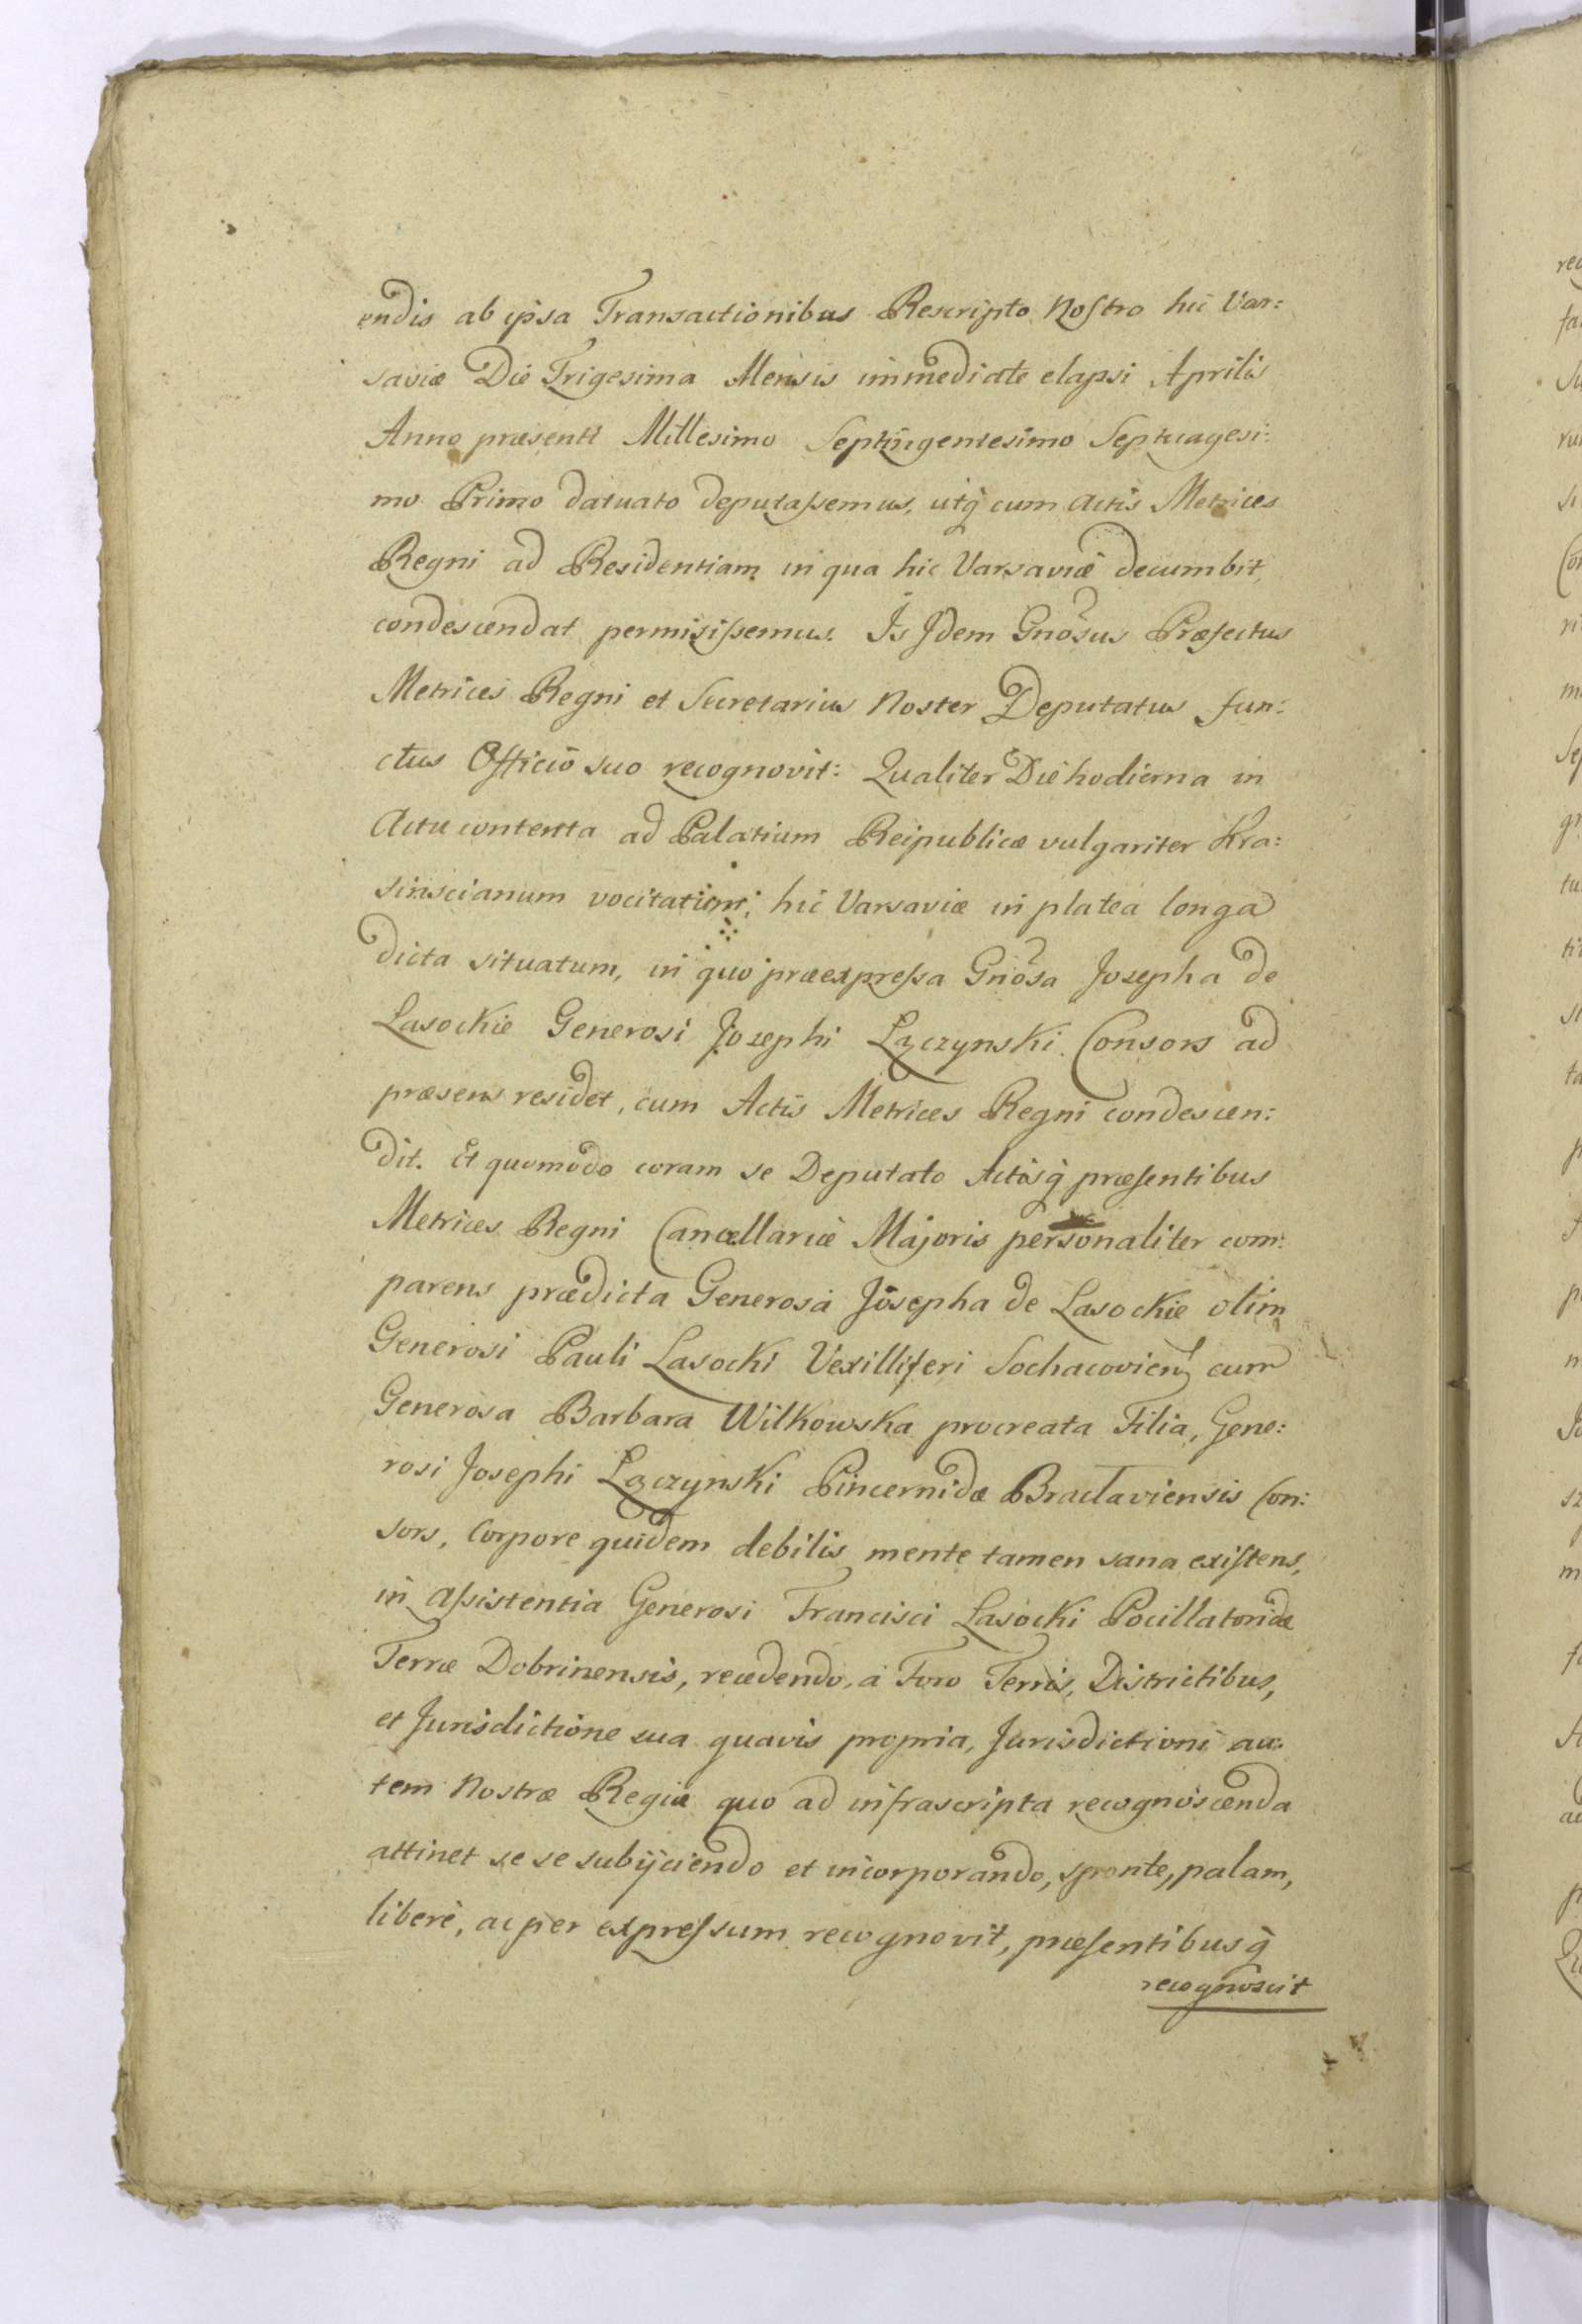 endis ab ipsa Transactionibus Rescripto Nostro hic Var:
saviæ Die Trigesima Mensis immediate elapsi Aprilis
Anno præsenti Millesimo Septingentesimo Septuagesi:
mo Primo datuato deputassemus, utq̀ cum Actis Metrices
Regni ad Residentiam in qua hic Varsaviæ decumbit
condescendat permisissemus. Is Idem Gnosus Præfectus
Metrices Regni et Secretarius Noster Deputatus fun:
ctus Officio suo recognovit: Qualiter Die hodierna in
Actu contenta ad Palatium Reipublicæ vulgariter Kra:
sinscianum vocitatum, hic Varsaviæ in platea longa
dicta situatum, in quo præexpressa Gnosa Josepha de
Lasockie Generosi Josephi Łączynski Consors ad
præsens residet, cum Actis Metrices Regni condescen:
dit. Et quomodo coram se Deputato Actisq̀ præsentibus
Metrices Regni Cancellariæ Majoris personaliter com:
parens prædicta Generosa Josepha de Lasockie olim
Generosi Pauli Lasocki Vexilliferi Sochacovien cum
Generosa Barbara Wilkowska procreata Filia, Gene:
rosi Josephi Łączynski Pincernidæ Braclaviensis Con:
sors, Corpore quidem debilis mente tamen sana existens,
in Assistentia Generosi Francisci Lasocki Pocillatoridæ
Terræ Dobrinensis, recedendo, à Foro Terris, Districtibus,
et Jurisdictione sua quavis propria, Jurisdictioni au:
tem Nostræ Regiæ quo ad infrascripta recognoscenda
attinet se se subijciendo et incorporando, sponte, palam,
liberè, ac per expressum recognovit, præsentibusq̀
recognoscit